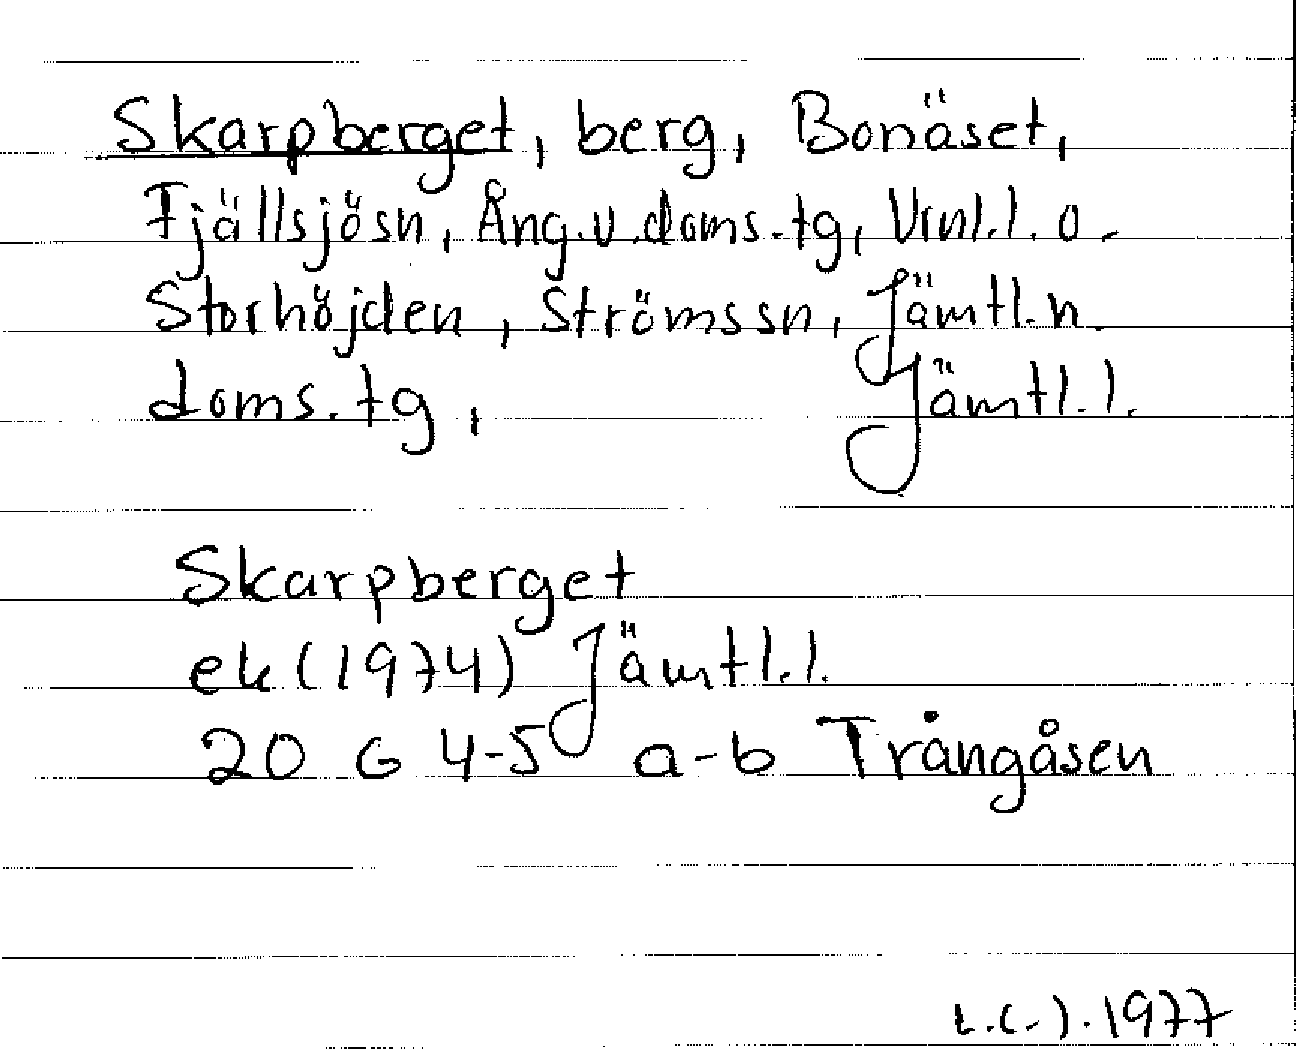 Skarpberget, berg, Bonäset,
Fjällsjösn, Ång.v.doms.tg, Vrnl.l. o.
Storhöjden, Strömssn, Jämtl.n.
doms.tg, Jämtl.l.
Skarpberget
ek (1974) Jämtl.l.
20 G 4-5 a-b Trångåsen
1977